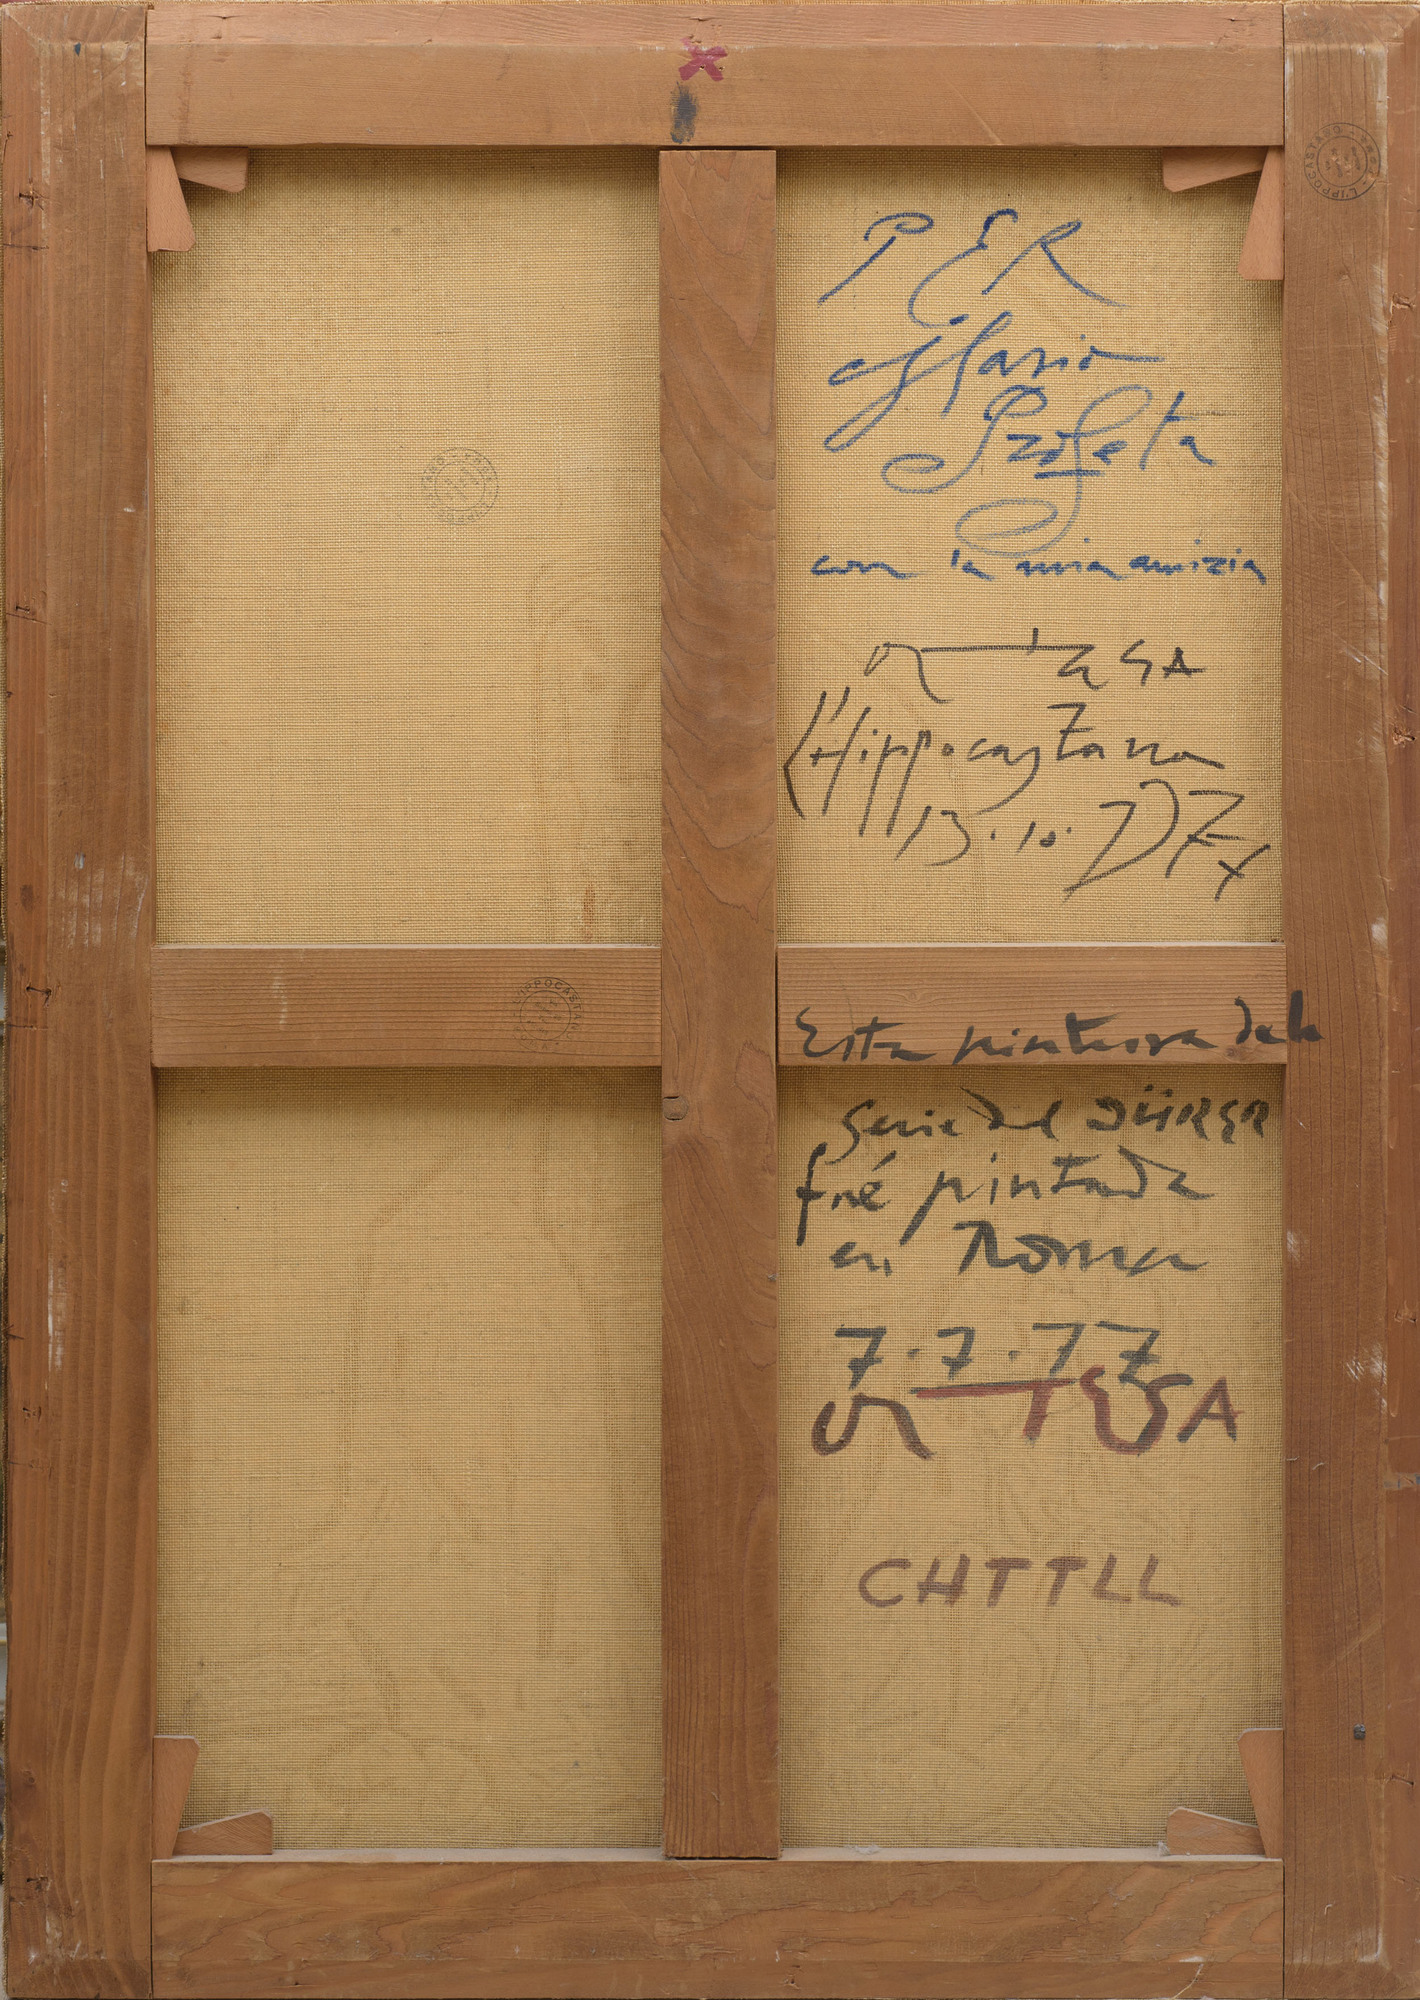 PER
Mario
Profeta
con la mia amizia
L'Hippocastano
13.10.
Esta pintura de la
serie del DÜRER
fué pintada
en Roma
7.7.77
ORTEGA
CHTTLL
L'IPPOCASTANO
L'IPPOCASTANO